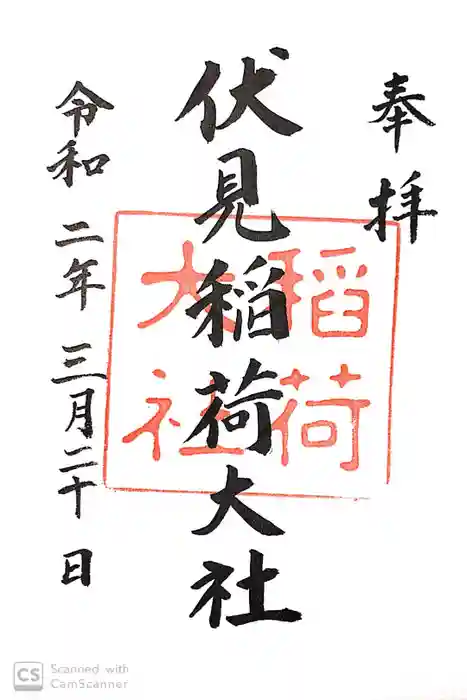 奉拝
伏見稲荷大社
稲荷
大社
令和二年三月二十日
CS Scanned with
CamScanner